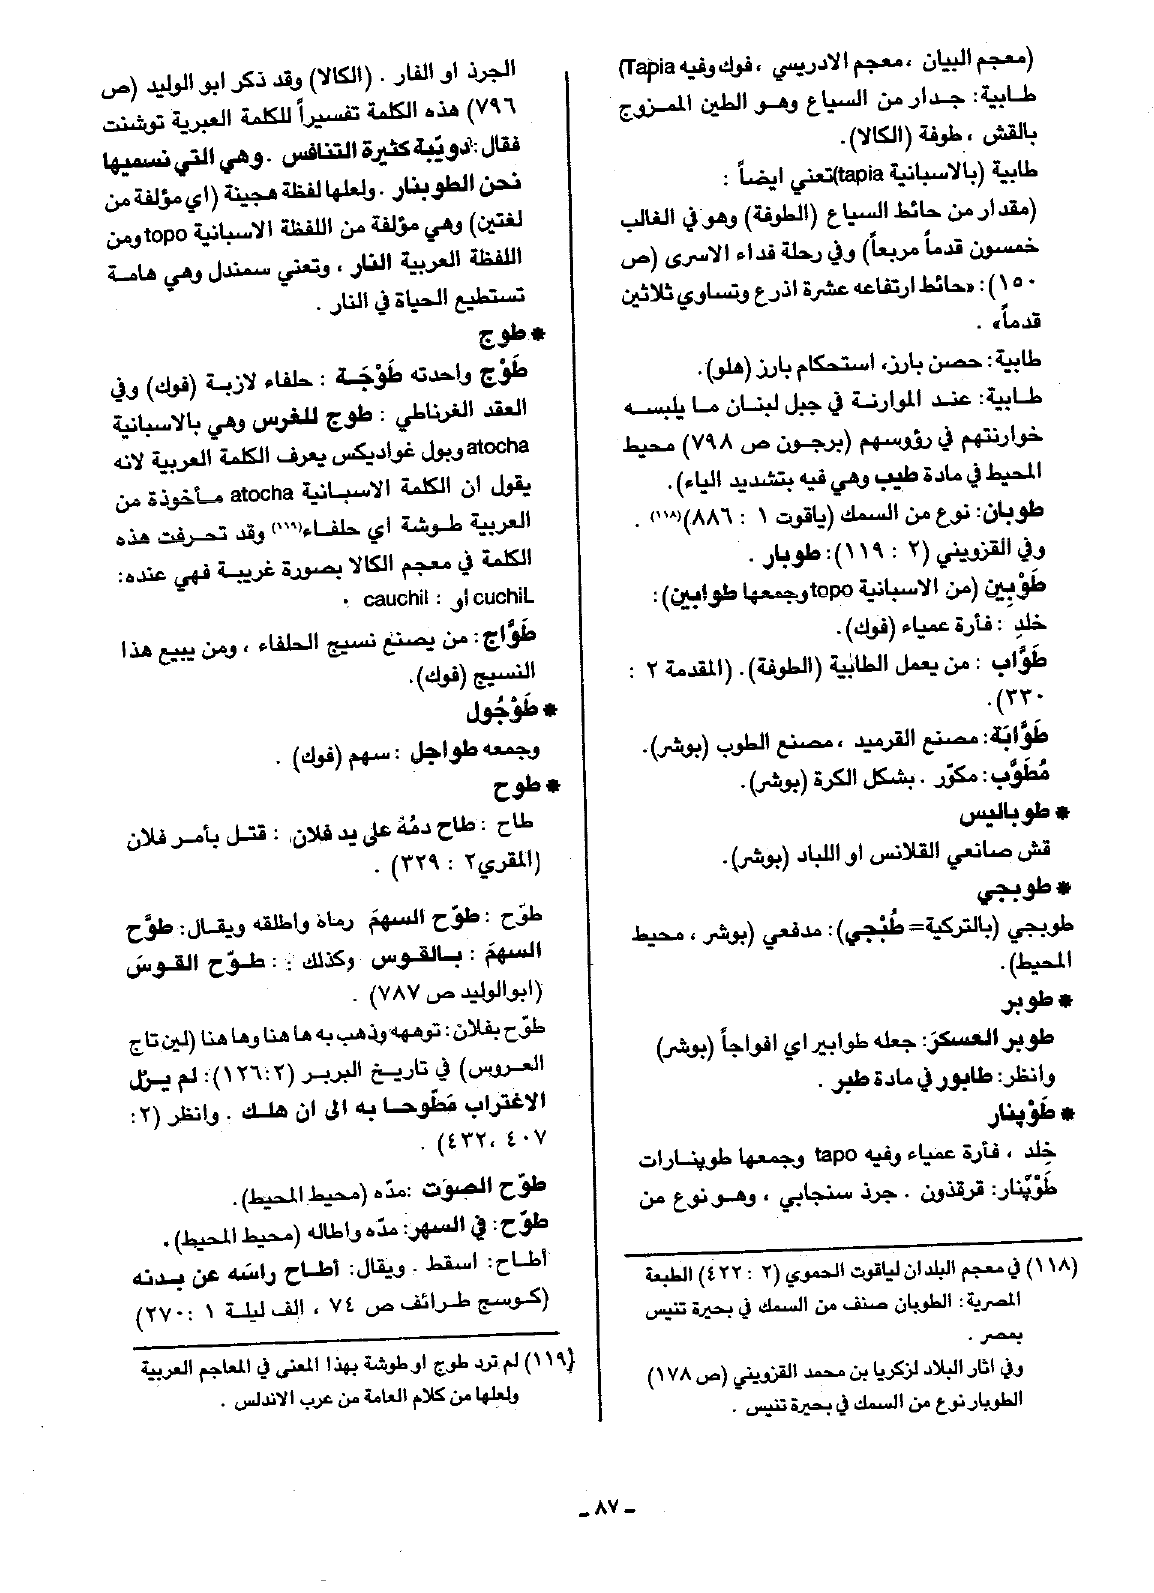 (معجم البيان ، معجم الادريسي ، فوك وفيه Tapia)
طابية: جدار من السياع وهو الطين الممزوج
بالقش ، طوفة (الكالا).
طابية (بالاسبانية tapia)تعني ايضاً :
(مقدار من حائط السياع (الطوفة) وهو في الغالب
خمسون قدماً مربعاً) وفي رحلة فداء الاسرى (ص
١٥٠): «حائط ارتفاعه عشرة اذرع وتساوي ثلاثين
قدماً» .
طابية: حصن بارز، استحكام بارز (هلو).
طابية: عند الموارنة في جبل لبنان ما يلبسه
خوارنتهم في رؤوسهم (برجون ص ٧٩٨) محيط
المحيط في مادة طيب وهي فيه بتشديد الياء).
طوبان: نوع من السمك (ياقوت ١ : ٨٨٦)(١١٨) .
وفي القزويني (٢ : ١١٩): طوبار .
طَوْبِين (من الاسبانية topo وجمعها طوابين):
خلدِ : فأرة عمياء (فوك).
طَوَّاب : من يعمل الطابية (الطوفة). (المقدمة ٢ :
٣٣٠).
طَوَّابَة: مصنع القرميد ، مصنع الطوب (بوشر).
مُطَوَّب: مكوّر . بشكل الكرة (بوشر).
* طوباليس
قش صانعي القلانس او اللباد (بوشر).
* طوبجي
طوبجي (بالتركية= طُبْجي): مدفعي (بوشر ، محيط
المحيط).
* طوبر
طوبر العسكرَ: جعله طوابير اي افواجاً (بوشر)
وانظر: طابور في مادة طبر .
* طَوْپنار
خِلد ، فأرة عمياء وفيه tapo وجمعها طوپنارات
طَوْپّنار: قرقذون . جرذ سنجابي ، وهو نوع من
(١١٨) في معجم البلدان لياقوت الحموي (٢ : ٤٢٢) الطبعة
المصرية: الطوبان صنف من السمك في بحيرة تنيس
بمصر .
وفي اثار البلاد لزكريا بن محمد القزويني (ص ١٧٨)
الطوبار نوع من السمك في بحيرة تنيس .
الجرذ او الفار . (الكالا) وقد ذكر ابو الوليد (ص
٧٩٦) هذه الكلمة تفسيراً للكلمة العبرية توشنت
فقال: دويّبة كثيرة التنافس . وهي التي نسميها
نحن الطوبنار . ولعلها لفظة هجينة (اي مؤلفة من
لغتين) وهي مؤلفة من اللفظة الاسبانية topo ومن
اللفظة العربية النار ، وتعني سمندل وهي هامة
تستطيع الحياة في النار .
* طوج
طَوْج واحدته طَوْجَة : حلفاء لازبة (فوك) وفي
العقد الغرناطي : طوج للغرس وهي بالاسبانية
atocha وبول غواديكس يعرف الكلمة العربية لانه
يقول ان الكلمة الاسبانية atocha مأخوذة من
العربية طوشة اي حلفاء(١١٩) وقد تحرفت هذه
الكلمة في معجم الكالا بصورة غريبة فهي عنده:
cuchiL او : cauchil .
طَوَّاج: من يصنع نسيج الحلفاء ، ومن يبيع هذا
النسيج (فوك).
* طَوْجُول
وجمعه طواجل : سهم (فوك) .
* طوح
طاح : طاح دمُهُ على يد فلان : قتل بأمر فلان
(المقري٢ : ٣٢٩) .
طوّح : طوّح السهمَ رماهُ واطلقه ويقال: طوَّح
السهمَ : بالقوس وكذلك : : طوّح القوسَ
(ابوالوليد ص ٧٨٧) .
طوّح بفلان: توهه وذهب به ها هنا وها هنا (لين تاج
العروس) في تاريخ البربر (٢:١٢٦): لم يزل
الاغتراب مَطّوحا به الى ان هلك . وانظر (٢:
٤٠٧ ،٤٣٢) .
طوّح الصوَت :مدّه (محيط المحيط).
طوّح: في السهر: مدّه واطاله (محيط المحيط) .
أطاح: اسقط . ويقال: أطاح راسَه عن بدنه
(كوسج طرائف ص ٧٤ ، الف ليلة ١ :٢٧٠)
(١١٩) لم ترد طوج او طوشة بهذا المعنى في المعاجم العربية
ولعلها من كلام العامة من عرب الاندلس .
ـ ٨٧ ـ